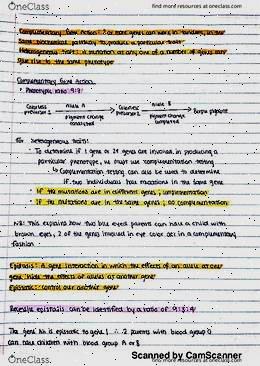 OneClass
find more resources at oneclass.com
find more resources at oneclass.com
Complementary Gene Action: 2 or more genes can work in tandem, in the
same biochemical pathway to produce a particular trait
Heterogenous trait: A mutation at any one of a number of genes can
give rise to the same phenotype
Complementary Gene Action
• Phenotypic ratio 9:7
Colorless precursor 1
allele A
Pigment change catalyzed
Colorless precursor 2
allele B
Pigment change completed
Purple pigment
For heterogenous traits:
• To determine if 1 gene or 2+ genes are involved in producing a
particular phenotype, we must use complementation testing
↳ Complementation testing can also be used to determine
if two individuals has mutations in the same gene
If the mutations are in different genes, complementation
If the mutations are in the same genes, no complementation
NB: This explains how two blue eyed parents can have a child with
brown eyes, 2 of the genes involved in eye color act in a complementary
fashion
Epistasis: A gene interaction in which the effects of an allele at one
gene hide the effects of alleles at another gene
Epistasis: control over another gene
Recessive epistasis can be identified by a ratio of 9:3:4
The gene hh is epistatic to gene I ∴ 2 parents with blood group O
can have children with blood group A or B
Scanned by CamScanner
OneClass
find more resources at oneclass.com